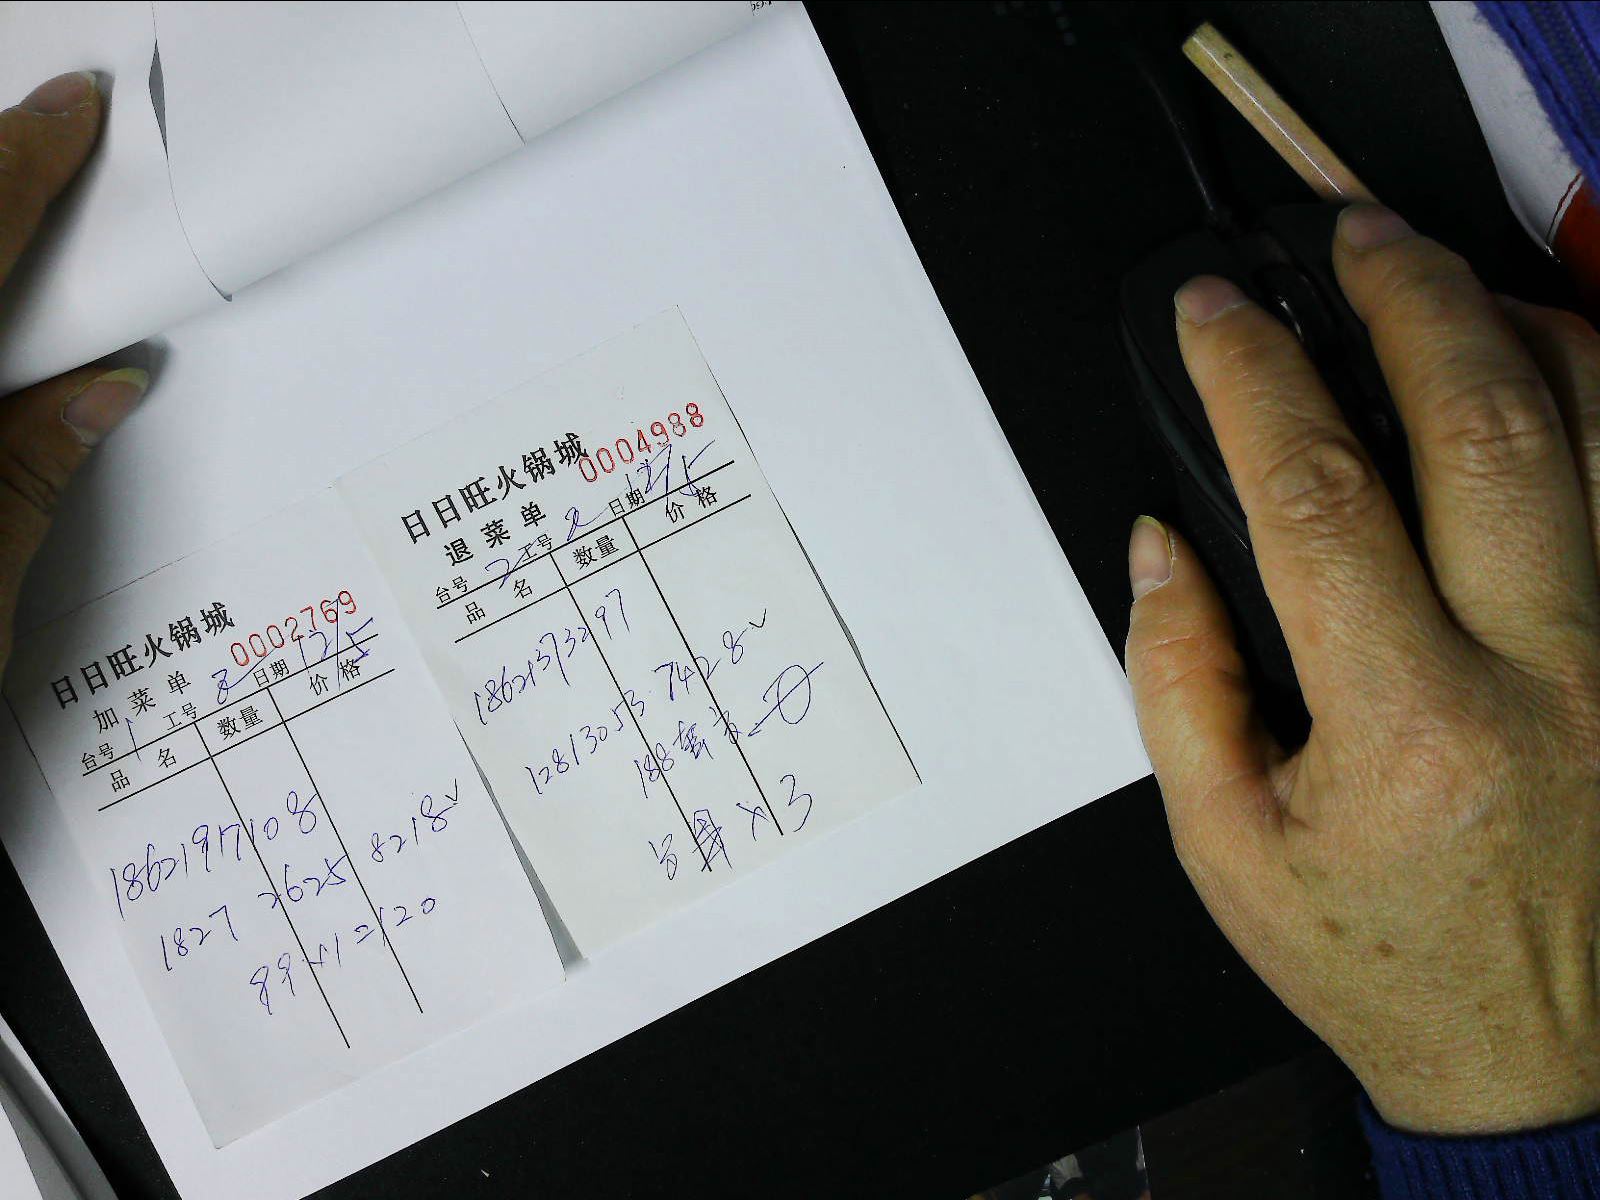 日日旺火锅城
0002769
加菜单
台号 1 工号 8 日期 12/5
品名 数量 价格
18621917108
1827 2625 8218✓
89×1=120
日日旺火锅城
0004988
退菜单
台号 2 工号 2 日期 12/5
品名 数量 价格
18621373297
12813053 7428✓
188套
×3